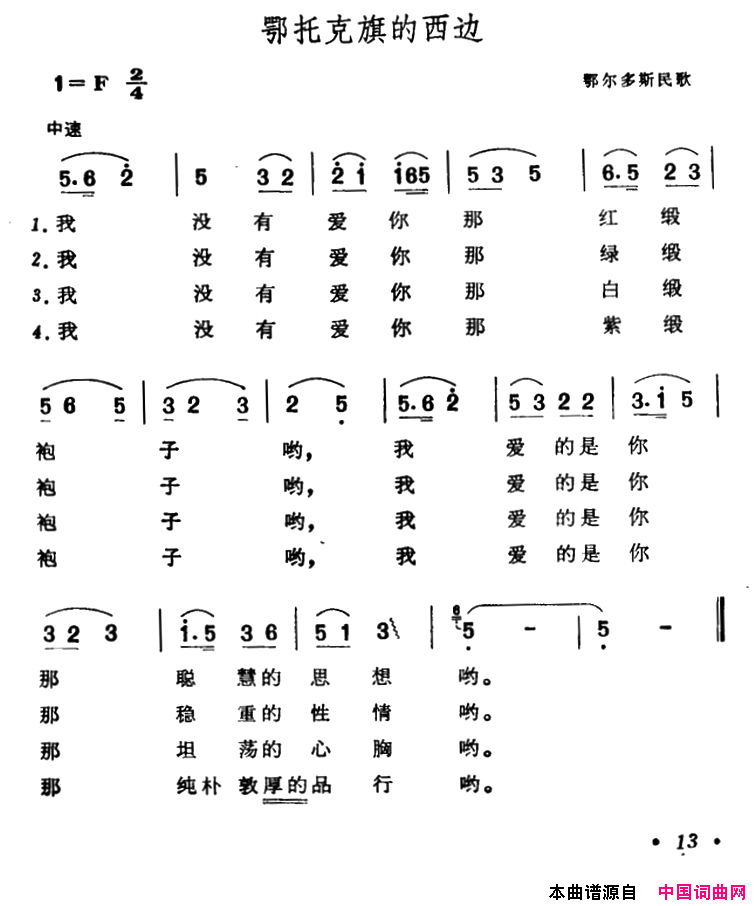 鄂托克旗的西边
1=F 2/4
鄂尔多斯民歌
中速
5.6 2 | 5 3 2 | 2 1 1 6 5 | 5 3 5 | 6.5 2 3 |
1.我 没 有 爱 你 那 红 缎
2.我 没 有 爱 你 那 绿 缎
3.我 没 有 爱 你 那 白 缎
4.我 没 有 爱 你 那 紫 缎
5 6 5 | 3 2 3 | 2 5 | 5.6 2 | 5 3 2 2 | 3.1 5 |
袍 子 哟, 我 爱 的 是 你
袍 子 哟, 我 爱 的 是 你
袍 子 哟, 我 爱 的 是 你
袍 子 哟, 我 爱 的 是 你
3 2 3 | 1.5 3 6 | 5 1 3 | 6 5 - | 5 - ‖
那 聪 慧 的 思 想 哟。
那 稳 重 的 性 情 哟。
那 坦 荡 的 心 胸 哟。
那 纯 朴 敦 厚 的 品 行 哟。
• 13 •
本曲谱源自 中国词曲网